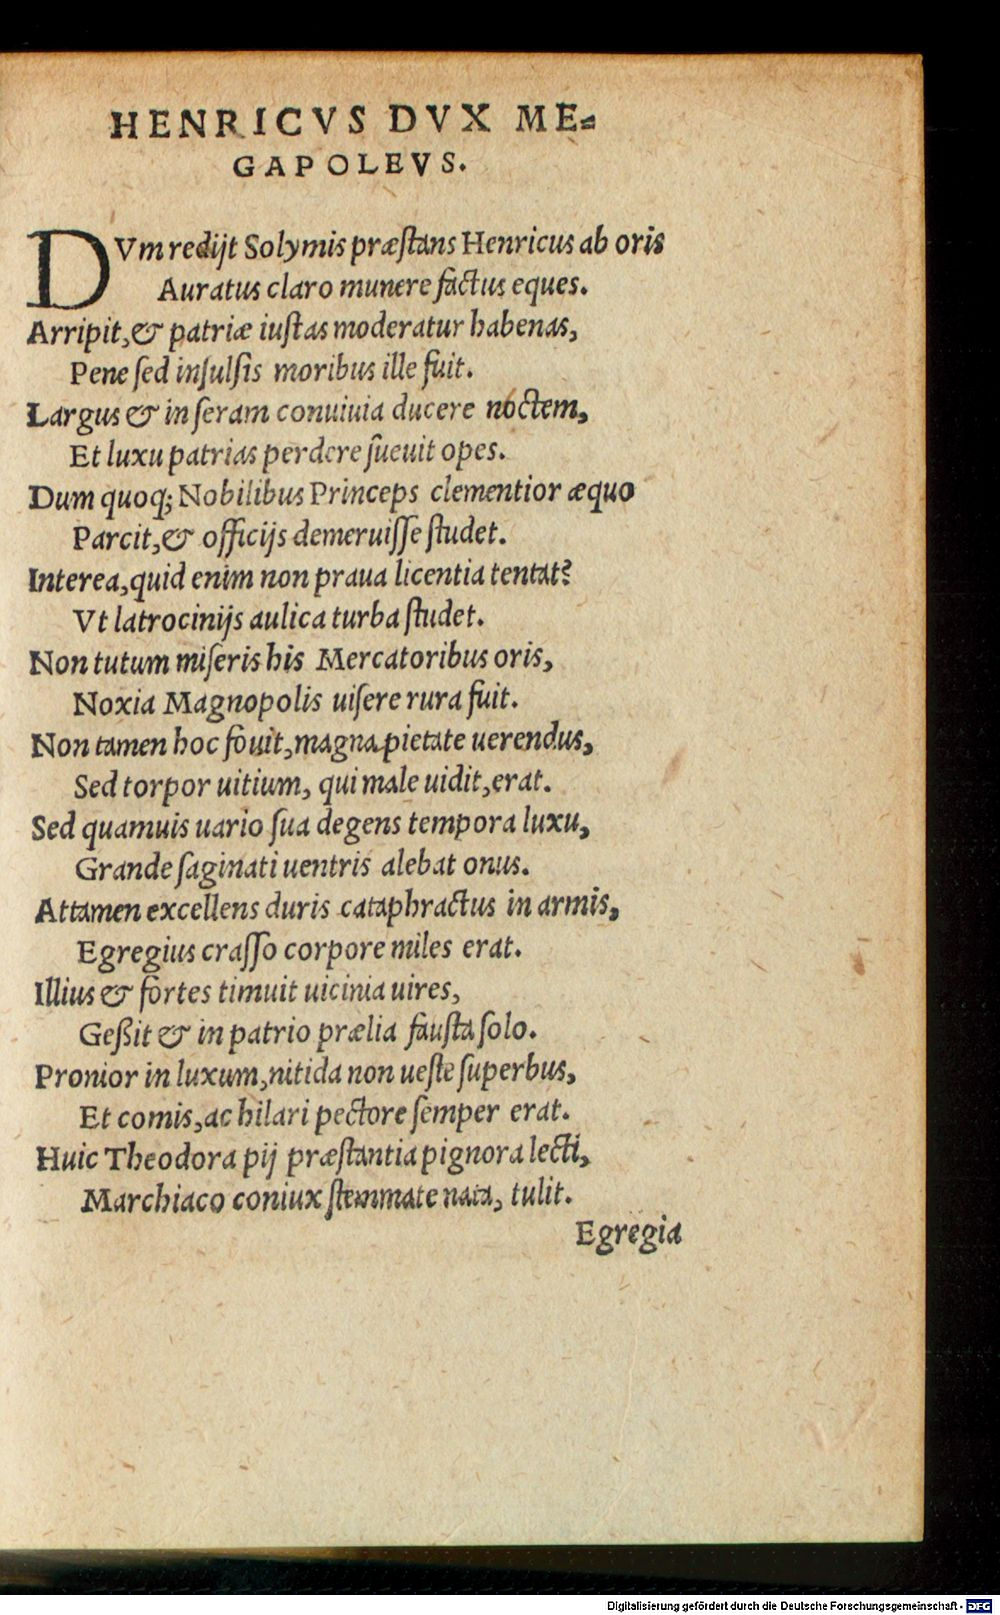 HENRICVS DVX ME=
GAPOLEVS.
DVm redijt Solymis præſtans Henricus ab oris
Auratus claro munere factus eques.
Arripit, & patriæ iuſtas moderatur habenas,
Pene ſed inſulſis moribus ille fuit.
Largus & in ſeram conuiuia ducere noctem,
Et luxu patrias perdere ſueuit opes.
Dum quoq; Nobilibus Princeps clementior æquo
Parcit, & officijs demeruiſſe ſtudet.
Interea, quid enim non praua licentia tentat?
Vt latrocinijs aulica turba ſtudet.
Non tutum miſeris his Mercatoribus oris,
Noxia Magnopolis uiſere rura fuit.
Non tamen hoc fouit, magna pietate uerendus,
Sed torpor uitium, qui male uidit, erat.
Sed quamuis uario ſua degens tempora luxu,
Grande ſaginati uentris alebat onus.
Attamen excellens duris cataphractus in armis,
Egregius craſſo corpore miles erat.
Illius & fortes timuit uicinia uires,
Geßit & in patrio prælia fauſta ſolo.
Pronior in luxum, nitida non ueſte ſuperbus,
Et comis, ac hilari pectore ſemper erat.
Huic Theodora pij præſtantia pignora lecti,
Marchiaco coniux ſtemmate nata, tulit.
Egregia
Digitalisierung gefördert durch die Deutsche Forschungsgemeinschaft - DFG